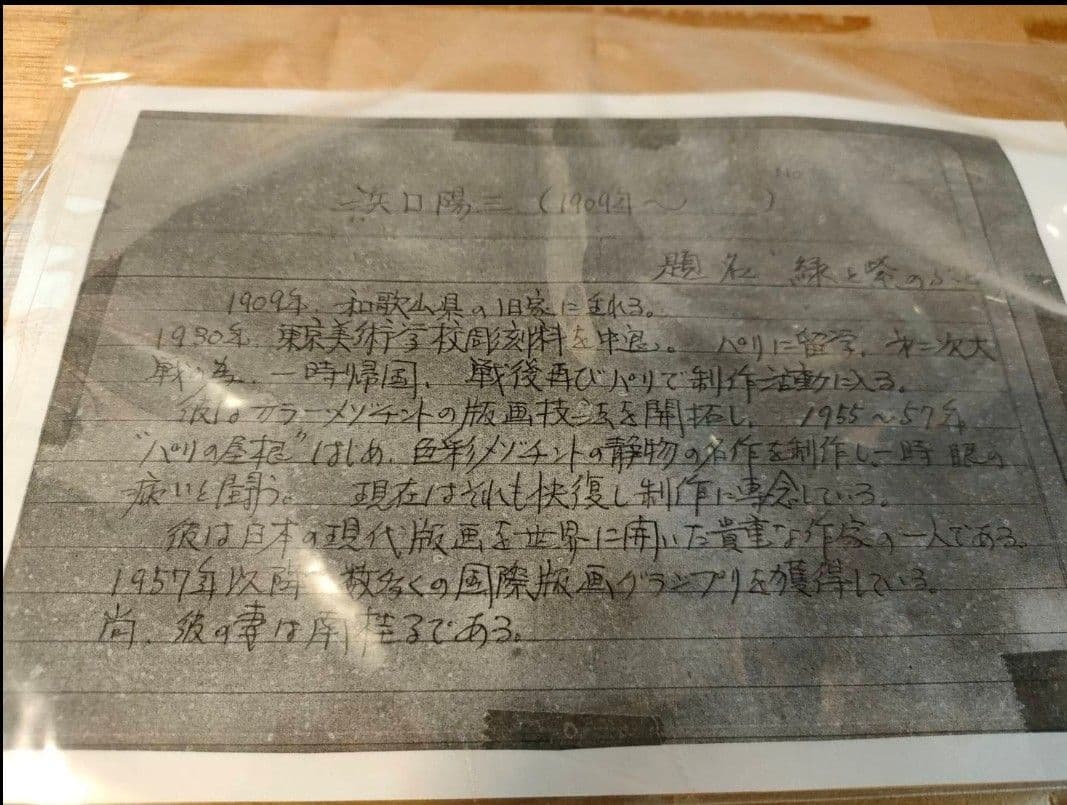 No
浜口陽三（1909年〜　　）
題名 緑と紫のぶどう
1909年 和歌山県の旧家に生れる。
1930年 東京美術学校彫刻科を中退。パリに留学、第二次大
戦の為、一時帰国、戦後再びパリで制作活動に入る。
彼はカラーメゾチントの版画技法を開拓し、1955〜57年
“パリの屋根”はじめ、色彩メゾチントの静物の名作を制作し、一時眼の
病いと闘う。現在はそれも快復し制作に専念している。
彼は日本の現代版画を世界に開いた貴重な作家の一人である。
1957年以降 数多くの国際版画グランプリを獲得している。
尚、彼の妻は南桂子である。